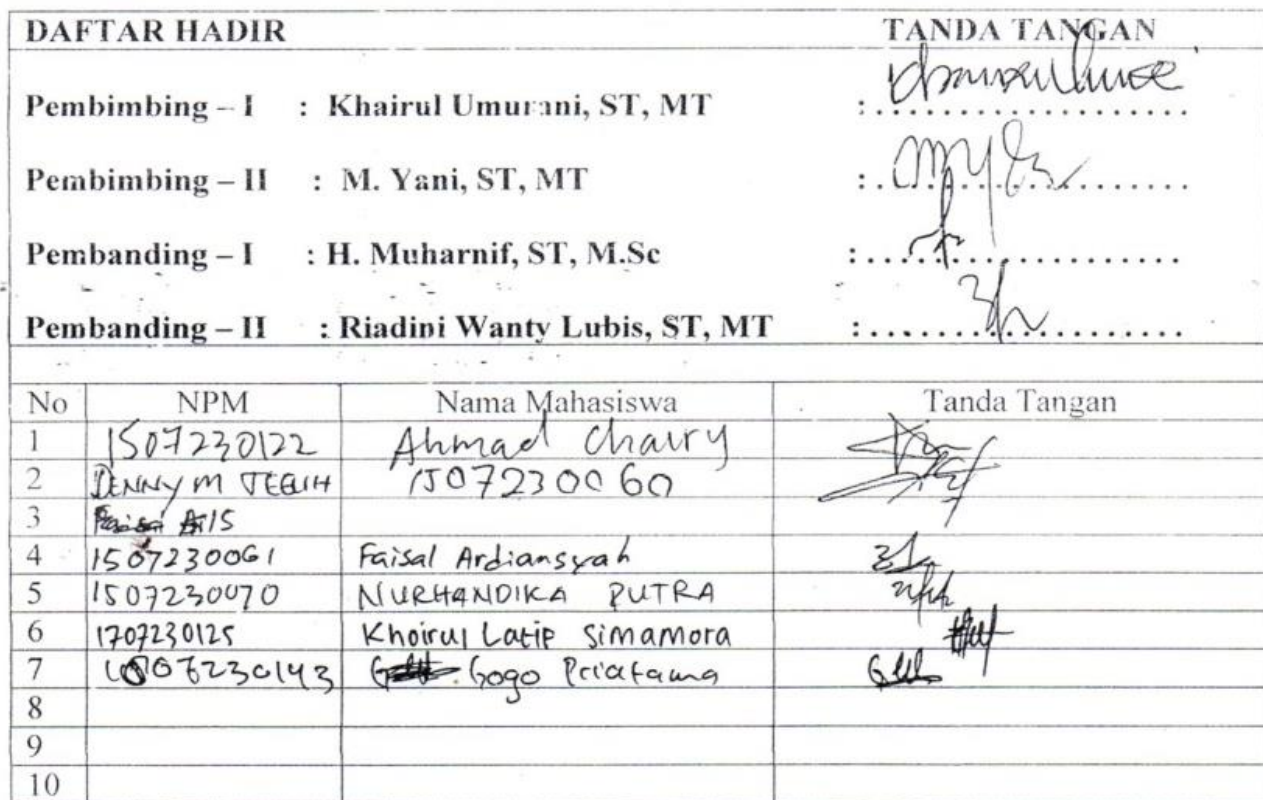 DAFTAR HADIR TANDA TANGAN
Pembimbing – I : Khairul Umurani, ST, MT :
Pembimbing – II : M. Yani, ST, MT :
Pembanding – I : H. Muharnif, ST, M.Sc :
Pembanding – II : Riadini Wanty Lubis, ST, MT :
No NPM Nama Mahasiswa Tanda Tangan
1 1507230122 Ahmad Chairy
2 DENNY M 1507230060
3
4 1507230061 Faisal Ardiansyah
5 1507230070 NURHANDIKA PUTRA
6 1707230125 Khoirul Latip Simamora
7 Gogo Priatama
8
9
10